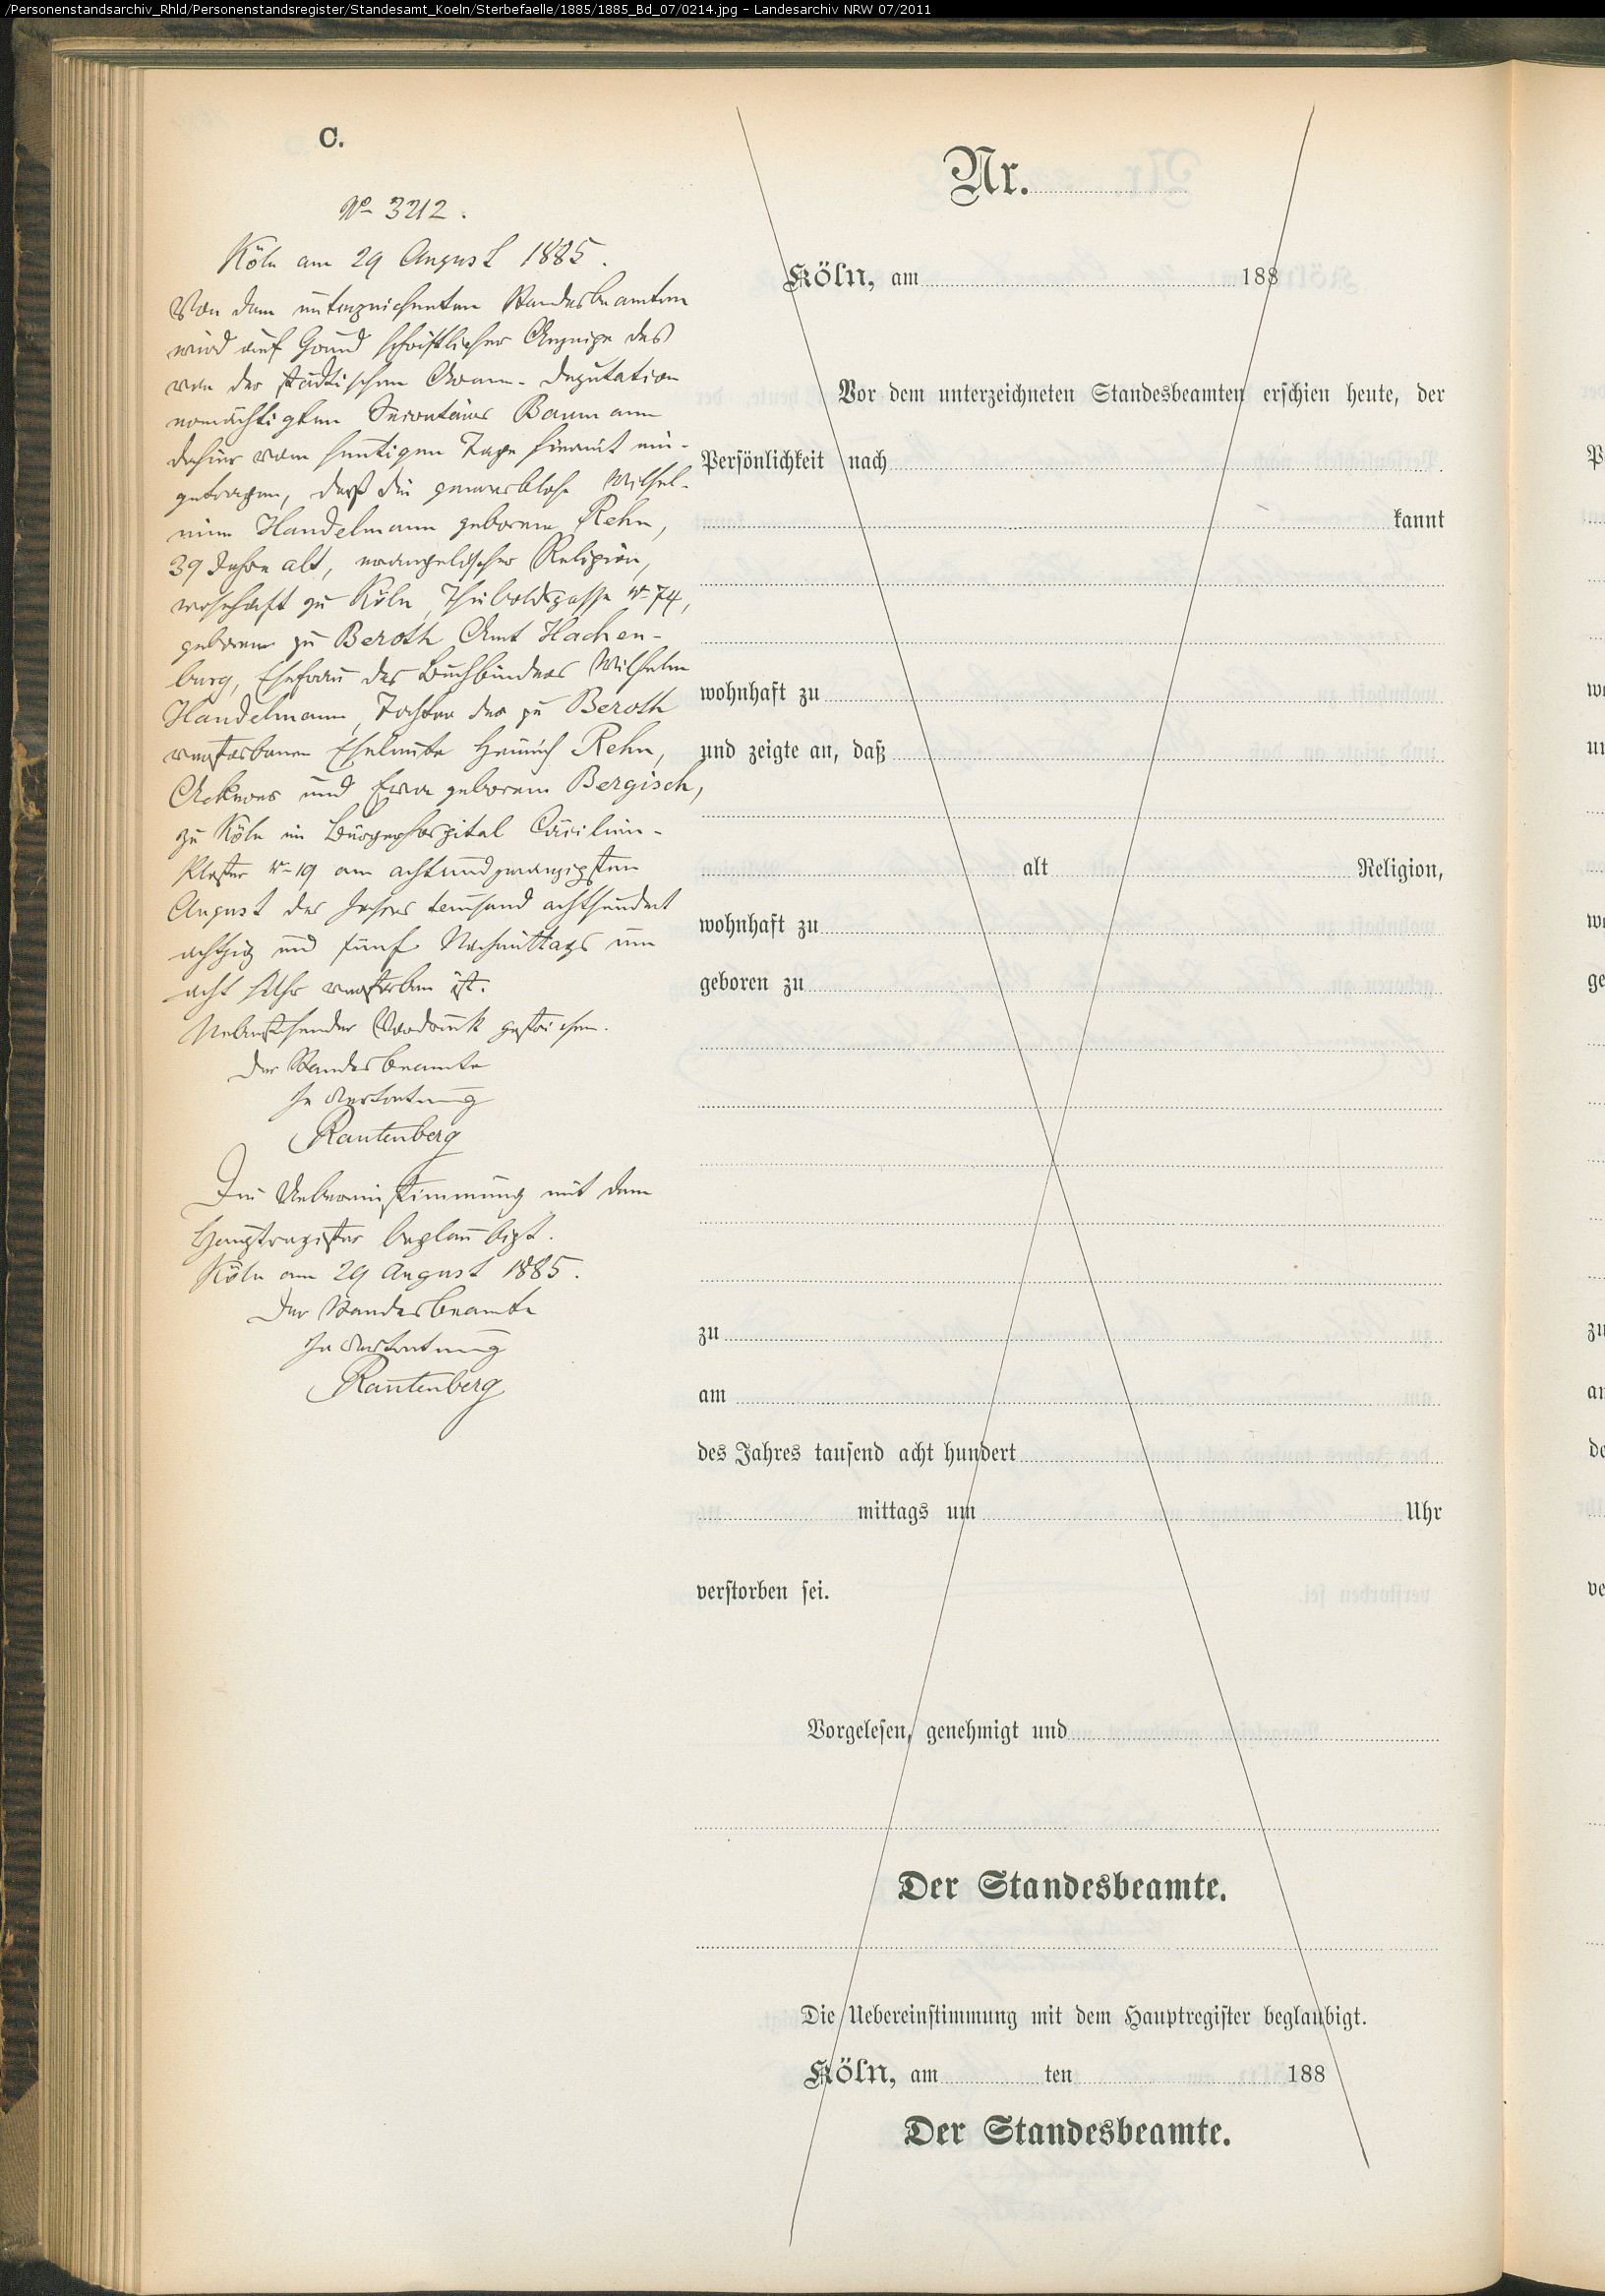 /Personenstandsarchiv_Rhld/Personenstandsregister/Standesamt_Koeln/Sterbefaelle/1885/1885_Bd_07/0214.jpg - Landesarchiv NRW 07/2011
C.
No 3212.
Köln am 29 August 1885.
Von dem unterzeichneten Standesbeamten
wird auf Grund schriftlicher Anzeige des
von der städtischen Armen-Deputation
ermächtigten Secretairs Baumann
dahier vom heutigen Tage hiermit ein-
getragen, daß die gewerblose Wilhel-
mine Handelmann geborene Rehn,
39 Jahre alt, evangelischer Religion,
wohnhaft zu Köln, Thieboldsgasse No 74,
geboren zu Beroth Amt Hachen-
burg, Ehefrau des Buchbinders Wilhelm
Handelmann, Tochter der zu Beroth
verstorbenen Eheleute Heinrich Rehn,
Ackerer und Eva geborene Bergisch,
zu Köln im Bürgerhospital Cäcilien-
kloster No 19 am achtundzwanzigsten
August des Jahres tausend achthundert
achtzig und fünf Nachmittags um
acht Uhr verstorben ist.
Nebenstehender Vordruck gestrichen.
Der Standesbeamte
In Vertretung
Rautenberg
Die Uebereinstimmung mit dem
Hauptregister beglaubigt.
Köln am 29 August 1885.
Der Standesbeamte
In Vertretung
Rautenberg
Nr.
Köln, am 188
Vor dem unterzeichneten Standesbeamten erschien heute, der
Persönlichkeit nach
kannt
wohnhaft zu
und zeigte an, daß
alt Religion,
wohnhaft zu
geboren zu
zu
am
des Jahres tausend acht hundert
mittags um Uhr
verstorben sei.
Vorgelesen, genehmigt und
Der Standesbeamte.
Die Uebereinstimmung mit dem Hauptregister beglaubigt.
Köln, am ten 188
Der Standesbeamte.